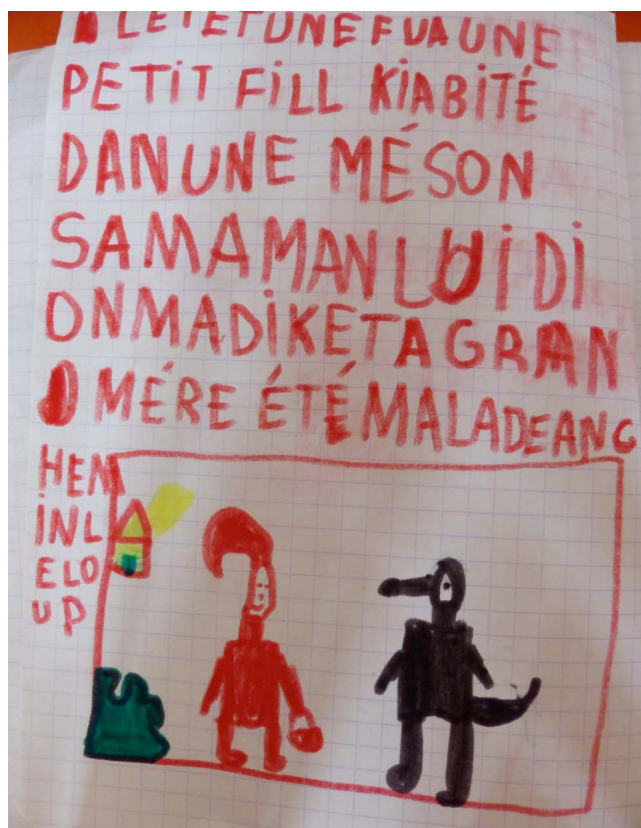 LÉTÉTUNEFUAUNE
PETIT FILL KIABITÉ
DANUNE MÉSON
SAMAMANLUIDI
ONMADIKETAGRAN
MÉRE ÉTÉMALADEANG
HEM
INL
ELO
UP